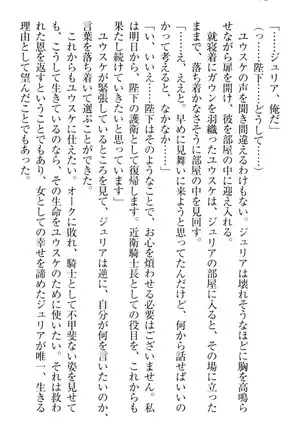 「……ジュリア、俺だ」
（っ……陛下……どうして……）
ユウスケの声を聞き間違えるわけもない。ジュリアは壊れそうなほどに胸を高鳴ら
せながら扉を開け、彼を部屋の中に迎え入れる。
就寝着にガウンを羽織ったユウスケは、ジュリアの部屋に入ると、その場に立った
ままで、落ち着かなさそうに部屋の中を見回す。
「……ええと。早めに見舞いに来ようと思ってたんだけど、何から話せばい
かって考えると、なかなか……」
「い、いいえ……陛下はそのようなことで、お心を煩わせる必要はございません。私
は明日から、陛下の護衛として復帰します。近衛騎士長としての役目を、これからも
果たし続けていきたいと思っています」
ユウスケが緊張しているところを見て、ジュリアは逆に、自分が何を言いたいのか、
言葉を落ち着いて選ぶことができた。
これからもユウスケに仕えたい。オークに敗れ、騎士として不甲斐ない姿を見せて
も、こうして生きているのなら、その生命をユウスケのために使いたい。それは救わ
れた恩を返すということでもあり、女としての幸せを諦めたジュリアが唯一、生きる
理由として望んだことでもあった。